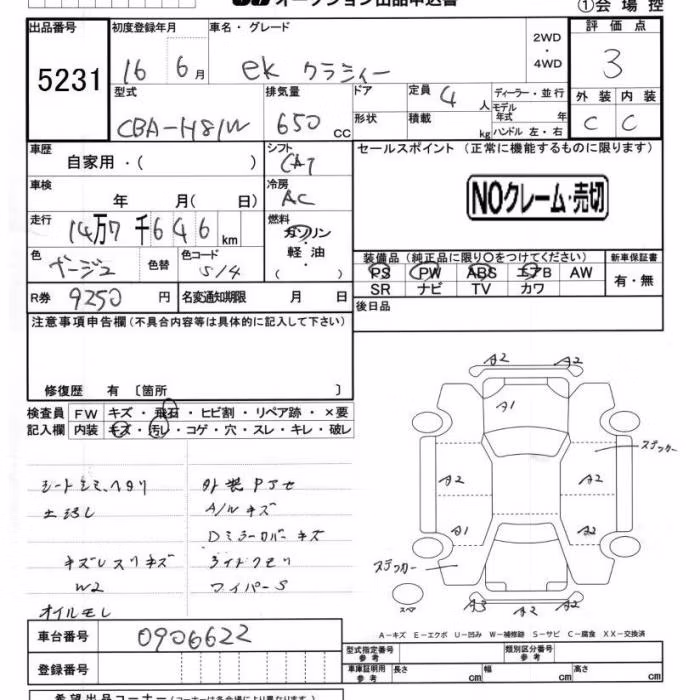 オークション出品申込書
①会場控
出品番号 5231
初度登録年月 16 6月
車名・グレード ek クラシィー
2WD・4WD
評価点 3
型式 CBA-H81W
排気量 650 CC
ドア形状
定員 4 人
積載 kg
ディーラー・並行
モデル年式 年
ハンドル 左・右
外装 C
内装 C
車歴 自家用・( )
シフト CAT
セールスポイント (正常に機能するものに限ります)
NOクレーム・売切
車検 年 月( 日)
冷房 AC
走行 14万7千646km
燃料 ガソリン・軽油・( )
色 ベージュ
色替
色コード S14
装備品 (純正品に限り○をつけてください)
PS PW ABS エアB AW
SR ナビ TV カワ
新車保証書 有・無
R券 9250円
名変通知期限 月 日
後日品
注意事項申告欄(不具合内容等は具体的に記入して下さい)
修復歴 有 〔箇所 〕
検査員記入欄
FW キズ・飛石・ヒビ割・リペア跡・×要
内装 キズ・汚レ・コゲ・穴・スレ・キレ・破レ
シートシミ、ヘタリ
外装Pアセ
A/Wキズ
Dミラーカバーキズ
キズレスリキズ
ライトクモリ
W2
ワイパーS
オイルモレ
A2 A2
A1
ステッカー
A2 A2
A1 A2
ステッカー
スペア
A3 A2
A-キズ E-エクボ U-凹み W-補修跡 S-サビ C-腐食 XX-交換済
車台番号 0906622
登録番号
型式指定番号 参考
類別区分番号 参考
車庫証明用参考 長さ cm 幅 cm 高さ cm
希望出品コーナー(コーナーは各会場により異なります)